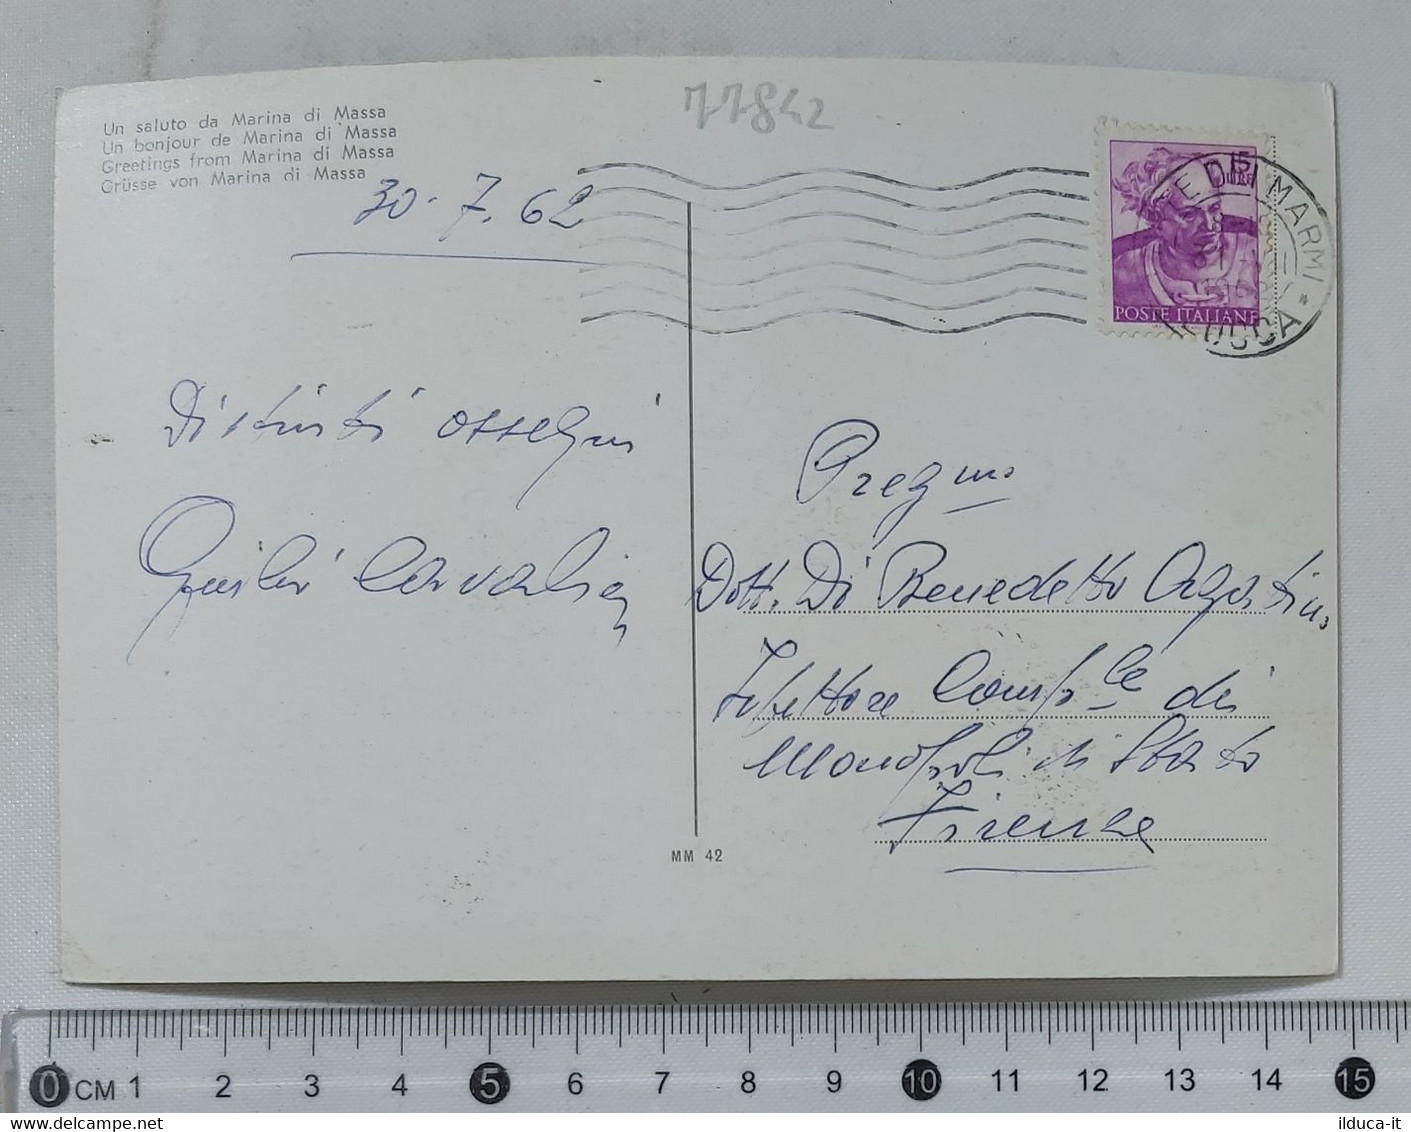 Un saluto da Marina di Massa
Un bonjour de Marina di Massa
Greetings from Marina di Massa
Grüsse von Marina di Massa
77842
30-7.62
15
LIRE
POSTE ITALIANE
DEI MARMI *
LUCCA
Distinti ossequi
Pregmo
Dott. Di Benedetto Agostino
Ispettore Comp.le dei
Monopoli di Stato
Firenze
MM 42
0 CM 1 2 3 4 5 6 7 8 9 10 11 12 13 14 15
www.delcampe.net
ilduca-it